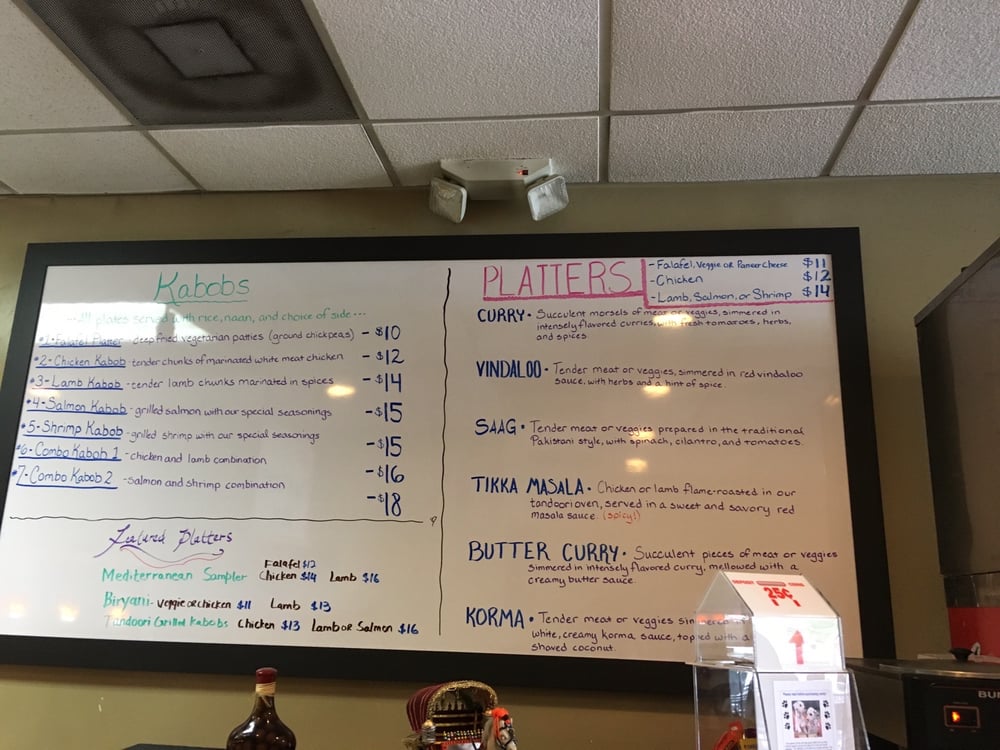 Kabobs
--- All plates served with rice, naan, and choice of side ---
#1-Falafel Platter - deep fried vegetarian patties (ground chickpeas) - $10
#2-Chicken Kabob - tender chunks of marinated white meat chicken - $12
#3-Lamb Kabob - tender lamb chunks marinated in spices - $14
#4-Salmon Kabob - grilled salmon with our special seasonings - $15
#5-Shrimp Kabob - grilled shrimp with our special seasonings - $15
#6-Combo Kabob 1 - chicken and lamb combination - $16
#7-Combo Kabob 2 - salmon and shrimp combination - $18
Featured Platters
Falafel $12
Mediterranean Sampler Chicken $14 Lamb $16
Biryani - Veggie or Chicken $11 Lamb $13
Tandoori Grilled Kabobs Chicken $13 Lamb or Salmon $16
PLATTERS
- Falafel, Veggie or Paneer Cheese $11
- Chicken $12
- Lamb, Salmon, or Shrimp $14
CURRY • Succulent morsels of meat or veggies, simmered in
intensely flavored curries, with fresh tomatoes, herbs,
and spices
VINDALOO • Tender meat or veggies, simmered in red vindaloo
sauce, with herbs and a hint of spice.
SAAG • Tender meat or veggies prepared in the traditional
Pakistani style, with spinach, cilantro, and tomatoes.
TIKKA MASALA • Chicken or lamb flame-roasted in our
tandoori oven, served in a sweet and savory red
masala sauce. (spicy!)
BUTTER CURRY • Succulent pieces of meat or veggies
simmered in intensely flavored curry, mellowed with a
creamy butter sauce.
KORMA • Tender meat or veggies simmered
white, creamy korma sauce, topped with a
shaved coconut.
DEPOSIT COINS
25¢
BU